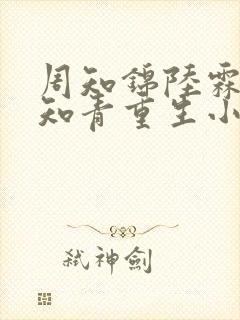 周知錦陸霖
知青重生小
弒神劍